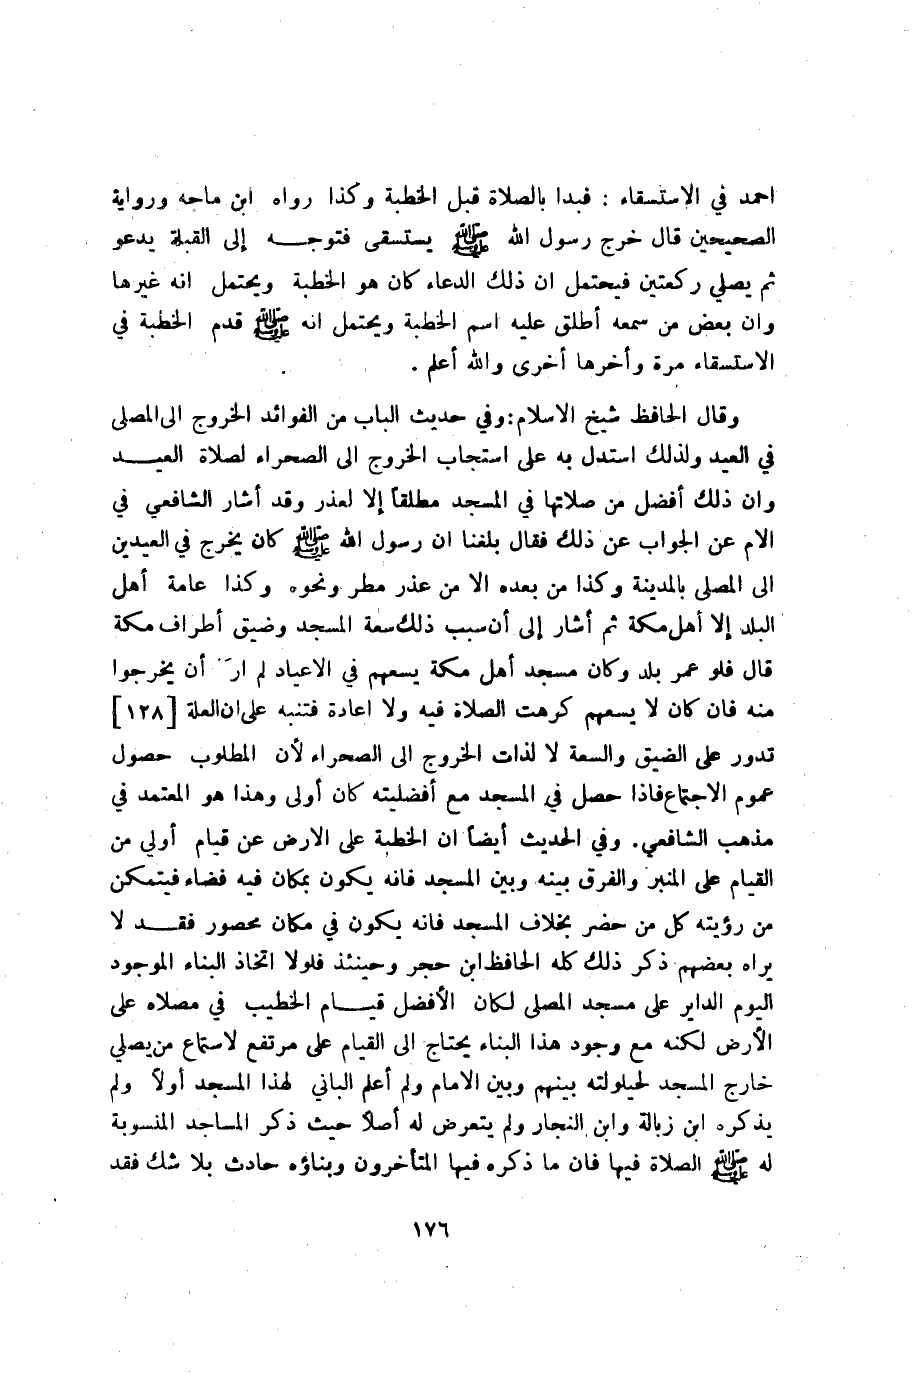 احمد في الاستسقاء : فبدا بالصلاة قبل الخطبة وكذا رواه ابن ماجه ورواية
الصحيحين قال خرج رسول الله ﷺ يستسقى فتوجـــه إلى القبلة يدعو
ثم يصلي ركعتين فيحتمل ان ذلك الدعاء كان هو الخطبة ويحتمل انه غيرها
وان بعض من سمعه أطلق عليه اسم الخطبة ويحتمل انه ﷺ قدم الخطبة في
الاستسقاء مرة وأخرها أخرى والله أعلم .
وقال الحافظ شيخ الاسلام:وفي حديث الباب من الفوائد الخروج الى المصلى
في العيد ولذلك استدل به على استجاب الخروج الى الصحراء لصلاة العيـــد
وان ذلك أفضل من صلاتها في المسجد مطلقاً إلا لعذر وقد أشار الشافعي في
الام عن الجواب عن ذلك فقال بلغنا ان رسول الله ﷺ كان يخرج في العيدين
الى المصلى بالمدينة وكذا من بعده الا من عذر مطر ونحوه وكذا عامة أهل
البلد إلا أهل مكة ثم أشار إلى أن سبب ذلك سعة المسجد وضيق أطراف مكة
قال فلو عمر بلد وكان مسجد أهل مكة يسعهم في الاعياد لم ارَ أن يخرجوا
منه فان كان لا يسعهم كرهت الصلاة فيه ولا اعادة فتنبه على ان العلة [١٢٨]
تدور على الضيق والسعة لا لذات الخروج الى الصحراء لأن المطلوب حصول
عموم الاجتماع فاذا حصل في المسجد مع أفضليته كان أولى وهذا هو المعتمد في
مذهب الشافعي. وفي الحديث أيضاً ان الخطبة على الارض عن قيام أولي من
القيام على المنبر والفرق بينه وبين المسجد فانه يكون بمكان فيه فضاء فيتمكن
من رؤيته كل من حضر بخلاف المسجد فانه يكون في مكان محصور فقـــد لا
يراه بعضهم ذكر ذلك كله الحافظ ابن حجر وحينئذ فلولا اتخاذ البناء الموجود
اليوم الداير على مسجد المصلى لكان الأفضل قيـــام الخطيب في مصلاه على
الأرض لكنه مع وجود هذا البناء يحتاج الى القيام على مرتفع لاستماع من يصلي
خارج المسجد لحيلولته بينهم وبين الامام ولم أعلم الباني لهذا المسجد أولاً ولم
يذكره ابن زبالة وابن النجار ولم يتعرض له أصلاً حيث ذكر المساجد المنسوبة
له ﷺ الصلاة فيها فان ما ذكره فيها المتأخرون وبناؤه حادث بلا شك فقد
١٧٦